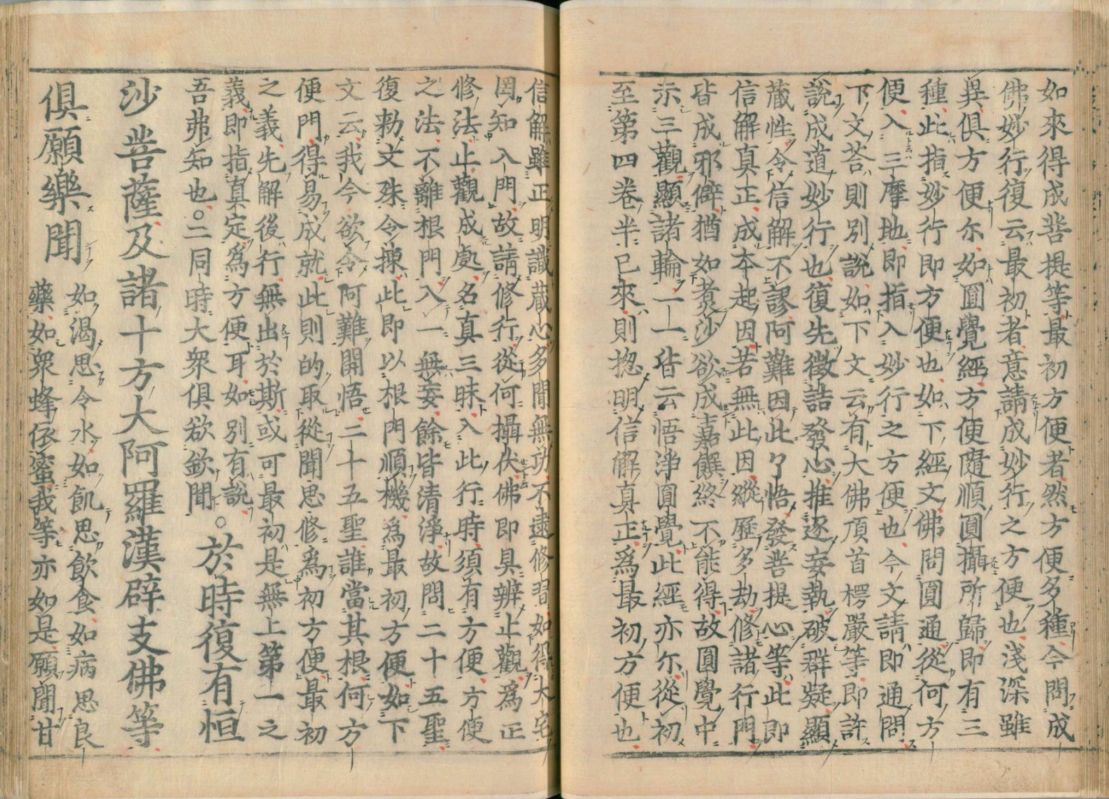 如來得成菩提等最初方便者然方便多種今問成
佛妙行復云最初者意請成妙行之方便也淺深雖
異俱方便尒如圓覺經方便隨順圓攝所歸即有三
種此指妙行即方便也如下經文佛問圓通從何方
便入三摩地即指入妙行之方便也今文請即通問
下文荅則別說如下文云有大佛頂首楞嚴等即許
說成道妙行也復先徵詰發心推逐妄執破群疑顯
藏性令信解不謬阿難因此了悟發菩提心等此即
信解真正成本起因若無此因縱歷多劫修諸行門
皆成邪僻猶如煮沙欲成嘉饌終不能得故圓覺中
示三觀顯諸輪一一皆云悟淨圓覺此經亦尒從初
至第四卷半已來則揔明信解真正為最初方便也
信解雖正明識藏心多聞無功不逮修習如得大宅
罔知入門故請修行從何攝伏佛即具辨止觀為正
修法止觀成處名真三昧入此行時須有方便方便
之法不離根門入一無妄餘皆清淨故問二十五聖
復勑文殊令揀此即以根門順機為最初方便如下
文云我今欲令阿難開悟二十五聖誰當其根何方
便門得易成就此則的取從聞思修為初方便最初
之義先解後行無出於斯或可最初是無上第一之
義即指真定為方便耳如別有說
吾弗知也○二同時大眾俱欲欽聞○於時復有恒
沙菩薩及諸十方大阿羅漢辟支佛等
俱願樂聞如渴思令水如飢思飲食如病思良
藥如眾蜂依蜜我等亦如是願聞甘